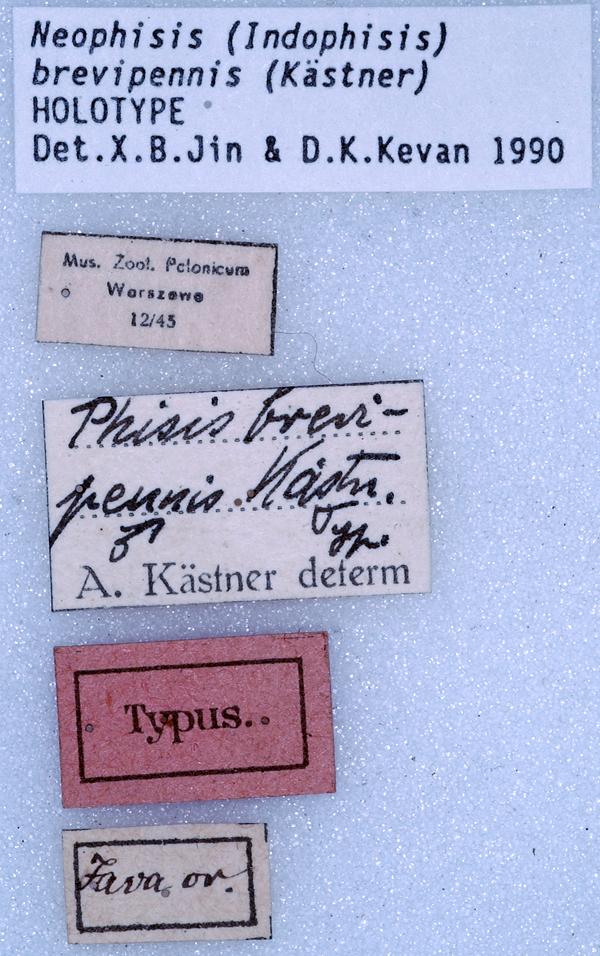 Neophisis (Indophisis)
brevipennis (Kästner)
HOLOTYPE
Det.X.B.Jin & D.K.Kevan 1990
Mus. Zool. Polonicum
Warszawa
12/45
Phisis brevi-
pennis Kästn.
♂ Typ.
A. Kästner determ
Typus.
Java or.